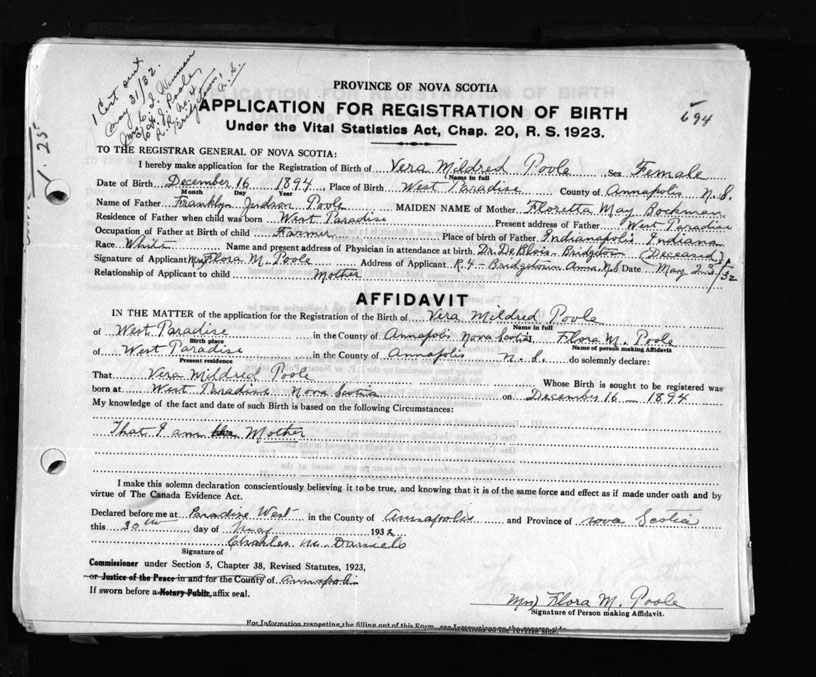 1 Cert out
May 31/32.
PROVINCE OF NOVA SCOTIA
APPLICATION FOR REGISTRATION OF BIRTH
Under the Vital Statistics Act, Chap. 20, R. S. 1923.
694
1.25
TO THE REGISTRAR GENERAL OF NOVA SCOTIA:
I hereby make application for the Registration of Birth of Vera Mildred Poole Sex Female
(Name in full
Date of Birth December 16 1894 Place of Birth West Paradise County of Annapolis N.S.
Month Day Year
Name of Father Franklyn Judson Poole MAIDEN NAME of Mother Floretta May Bockman
Residence of Father when child was born West Paradise Present address of Father West Paradise
Occupation of Father at Birth of child Farmer Place of birth of Father Indianapolis Indiana
Race White Name and present address of Physician in attendance at birth Dr. De Blois - Bridgetown (Deceased)
Signature of Applicant Mrs Flora M. Poole Address of Applicant R.4 - Bridgetown Anna. N.S Date May 23/32
Relationship of Applicant to child Mother
AFFIDAVIT
IN THE MATTER of the application for the Registration of the Birth of Vera Mildred Poole
Name in full
of West Paradise in the County of Annapolis Nova Scotia Flora M. Poole
Birth place Name of person making Affidavit
of West Paradise in the County of Annapolis N.S. do solemnly declare:
Present residence
That Vera Mildred Poole Whose Birth is sought to be registered was
born at West Paradise Nova Scotia on December 16 - 1894
My knowledge of the fact and date of such Birth is based on the following Circumstances:
That I am her Mother
I make this solemn declaration conscientiously believing it to be true, and knowing that it is of the same force and effect as if made under oath and by
virtue of The Canada Evidence Act.
Declared before me at Paradise West in the County of Annapolis and Province of nova Scotia
this 30th day of May 1932
Charles M Daniels
Signature of
Commissioner under Section 5, Chapter 38, Revised Statutes, 1923,
or Justice of the Peace in and for the County of Annapolis
If sworn before a Notary Public, affix seal.
Mrs) Flora M. Poole
Signature of Person making Affidavit.
For Information respecting the filling out of this Form, see Instructions on the reverse side.